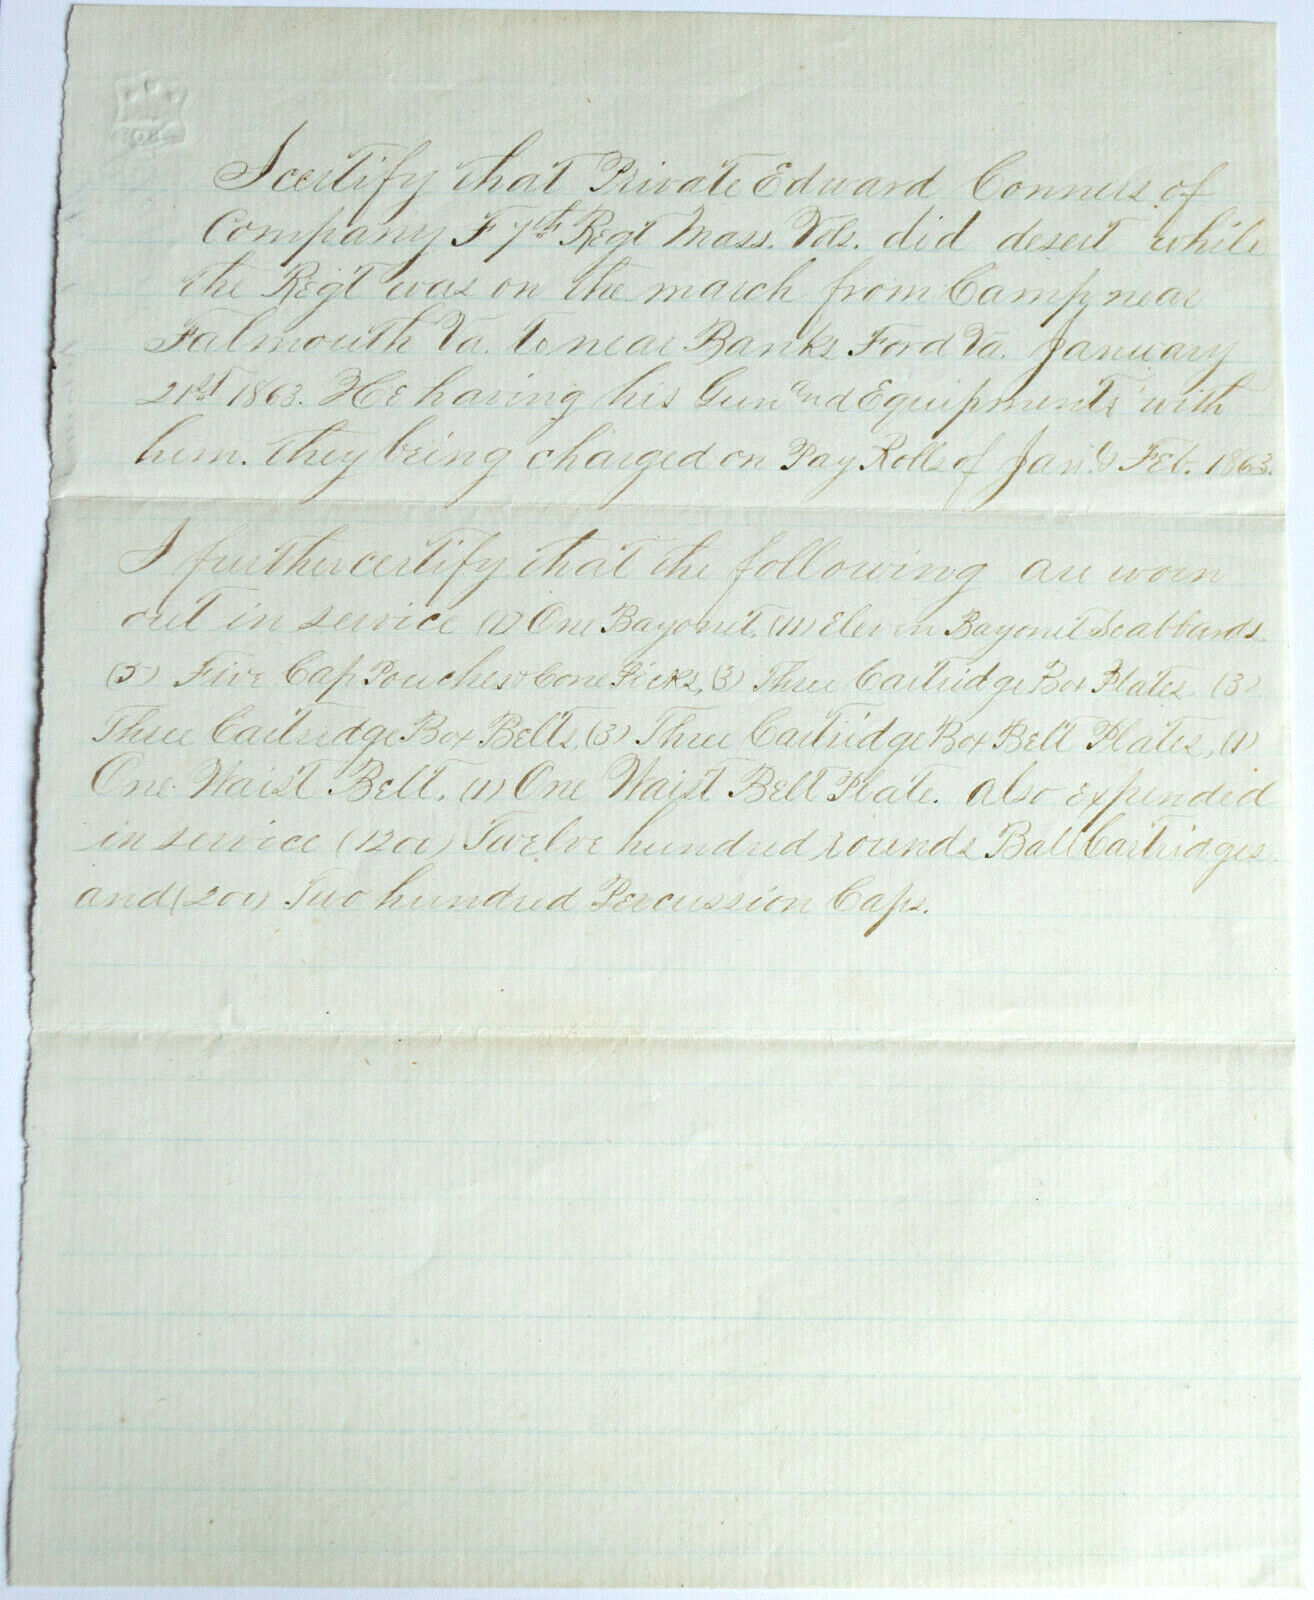 I certify that Private Edward Conners of
Company F 7th Regt Mass. Vols. did desert while
the Regt was on the march from Camp near
Falmouth Va. to near Banks Ford Va. January
21st 1863. He having his Gun and Equipments with
him. they being charged on Pay Rolls of Jan. & Feb. 1863.
I further certify that the following are worn
out in service (1) One Bayonit, (11) Eleven Bayonit Scabbards.
(5) Five Cap Pouches & Cone Picks, (3) Three Cartridge Box Plates, (3)
Three Cartridge Box Belts, (3) Three Cartridge Box Belt Plates, (1)
One Waist Belt, (1) One Waist Belt Plate. also expended
in service (1200) Twelve hundred rounds Ball Cartridges
and (200) Two hundred Percussion Caps.